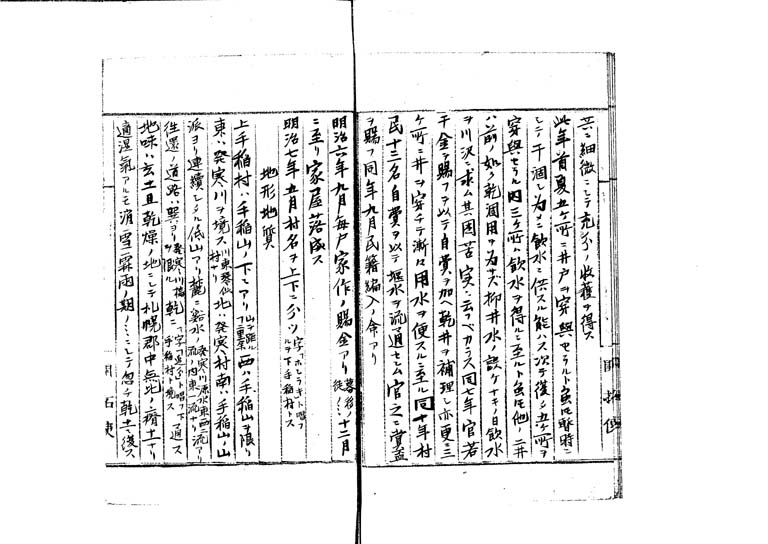 共ニ細微ニシテ充分ノ收穫ヲ得ス
此年首夏五ケ所ニ井戸ヲ穿與セラルト雖𪜈暫時ニ
シテ干涸シ為メニ飲水ニ供スル能ハス次テ復タ五ケ所ヲ
穿與セラル内三ケ所ハ飲水ヲ得ルニ至ルト雖𪜈他ノ二井
ハ前ノ如ク乾涸用ヲ為サス抑井水ノ設ケナキノ日飲水
ヲ川沢ニ求ム其困苦実ニ云フヘカラス同七年官若
干金ヲ賜フヲ以テ自費ヲ加ヘ乾井ヲ補理シ亦更ニ三
ケ所ニ井ヲ穿チテ漸々用水ヲ便スルニ至ル同十年村
民十三名自費ヲ以テ堰水ヲ流通セシム官之ニ賞盃
ヲ賜フ同年九月民籍編入ノ命アリ
明治六年九月毎戸家作ノ賜金アリ 十二月
ニ至リ家屋落成ス
明治七年五月村名ヲ上下ニ分ツ
地形地質
上手稲村ハ手稲山ノ下ニアリ 西ハ手稲山ヲ限リ
東ハ発寒川ヲ境ス 北ハ発寒村南ハ手稲山ノ山
派ヨリ連續シタル低山アリ麓ニ谿水ノ 流アリ
往還ノ道路ハ巽ヨリ 乾ニ 通ス
地味ハ玄土且乾燥ノ地ニシテ札幌郡中無比ノ瘠土ナリ
適湿氣アルモ消雪霖雨ノ期ノミニシテ忽チ乾土ニ復ス
開拓使